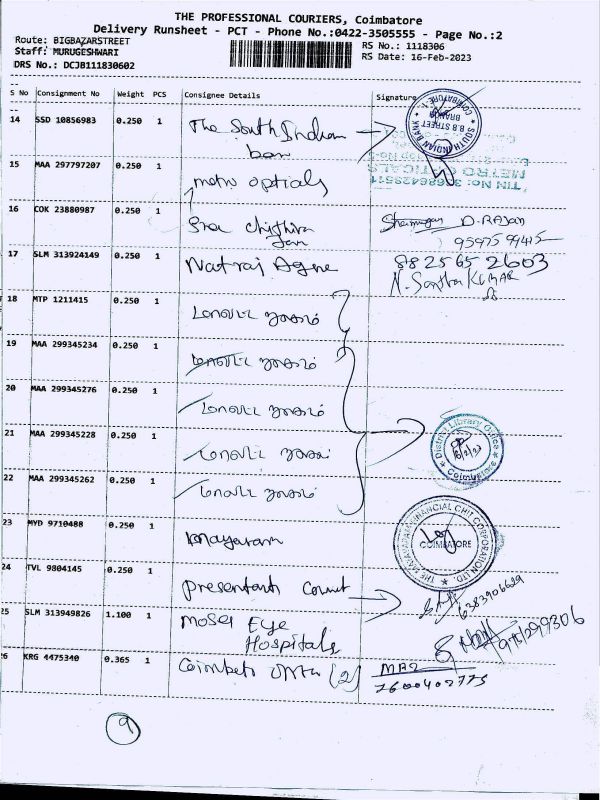 THE PROFESSIONAL COURIERS, Coimbatore
Delivery Runsheet - PCT - Phone No.:0422-3505555 - Page No.:2
Route: BIGBAZARSTREET
Staff: MURUGESHWARI
DRS No.: DCJB111830602
RS No.: 1118306
RS Date: 16-Feb-2023
S No Consignment No Weight PCS Consignee Details Signature
14 SSD 10856983 0.250 1 The South Indian
SOUTH INDIAN BANK B.B STREET BRANCH COIMBATORE
15 MAA 297797207 0.250 1 metro opticals
METRO OPTICALS
TIN No:
16 COK 23880987 0.250 1 D. RAJAN
17 SLM 313924149 0.250 1 Natraj 88 25 65 2603
N. KUMAR
18 MTP 1211415 0.250 1 மாவட்ட நூலகம்
19 MAA 299345234 0.250 1 மாவட்ட நூலகம்
20 MAA 299345276 0.250 1 மாவட்ட நூலகம்
21 MAA 299345228 0.250 1 மாவட்ட நூலகம்
District Library Office
16/2/23
Coimbatore
22 MAA 299345262 0.250 1 மாவட்ட நூலகம்
23 MYD 9710488 0.250 1 mayuram
FINANCIAL CHIT CORPORATION LTD.
COIMBATORE
24 TVL 9804145 0.250 1
6383906629
25 SLM 313949826 1.100 1 Eye
Hospitals
26 KRG 4475340 0.365 1 (2)
7600402775
9